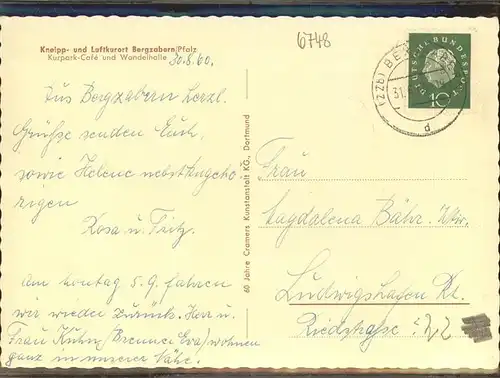 Kneipp- und Luftkurort Bergzabern/Pfalz
Kurpark-Café und Wandelhalle
30.8.60.
6748
Aus Bergzabern herzl.
Grüße senden Euch
sowie Helene nebst Angehö
rigen
Rosa u. Fritz.
Am Sontag 5.9. fahren
wir wieder zurück. Herr u.
Frau Kuhn/Brenner Eva/wohnen
ganz in unserer Nähe.
60 Jahre Cramers Kunstanstalt KG., Dortmund
(22b)
31.
d
DEUTSCHE BUNDESPOST
10
Frau
Magdalena Bähr. Wtw.
Ludwigshafen Rh.
Riedstraße 22